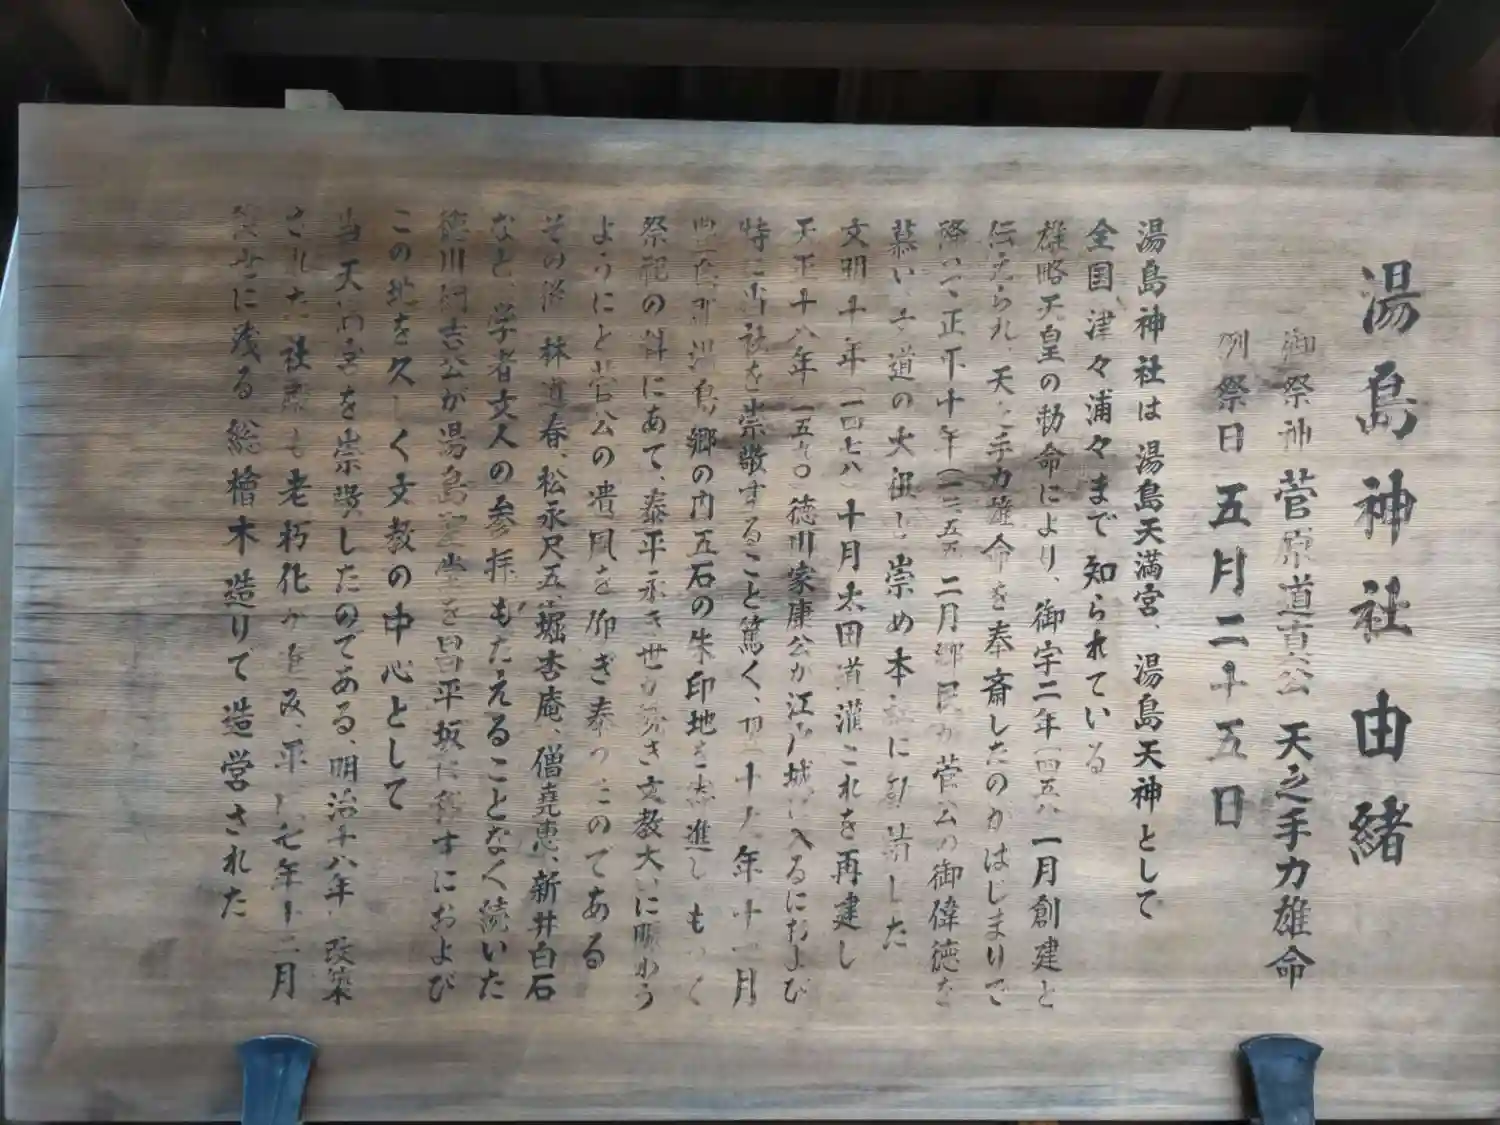 湯島神社由緒
御祭神 菅原道真公 天之手力雄命
例祭日 五月二十五日
湯島神社は湯島天満宮、湯島天神として
全国津々浦々まで知られている
雄略天皇の勅命により、御宇二年(四五八)一月創建と
伝えられ、天之手力雄命を奉斎したのがはじまりで
降って正平十年(一三五五)二月郷民が菅公の御偉徳を
慕い 文道の大祖と崇め本社に勧請した
文明十年(一四七八)十月太田道灌これを再建し
天正十八年(一五九〇)徳川家康公が江戸城に入るにおよび
特に当社を崇敬すること篤く、翌十九年十一月
湯島郷の内五石の朱印地を寄進し もって
祭祀の料にあて、泰平永き世が続き文教大いに賑わう
ようにと菅公の遺風を仰ぎ奉ったのである
その後 林道春、松永尺五、堀杏庵、僧堯恵、新井白石
など、学者文人の参拝もたえることなく続いた
徳川綱吉公が湯島聖堂を昌平坂に移すにおよび
この地を久しく文教の中心として
当天満宮を崇敬したのである、明治十八年に改築
された社殿も老朽化が進み、平成七年十二月
後世に残る総檜木造りで造営された